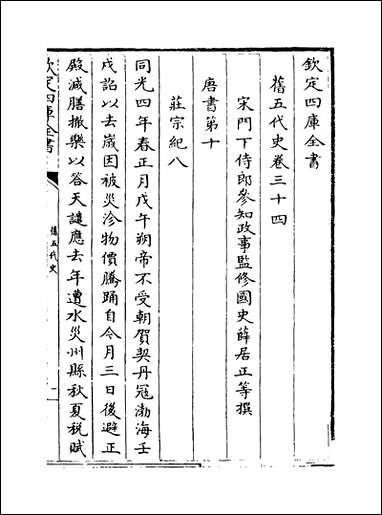 欽定四庫全書
舊五代史卷三十四
宋門下侍郎參知政事監修國史薛居正等撰
唐書第十
莊宗紀八
同光四年春正月戊午朔帝不受朝賀契丹冦渤海壬
戌詔以去歲因被災沴物價騰踴自今月三日後避正
殿減膳撤樂以答天譴應去年遭水災州縣秋夏稅賦
欽定四庫全書
舊五代史
一